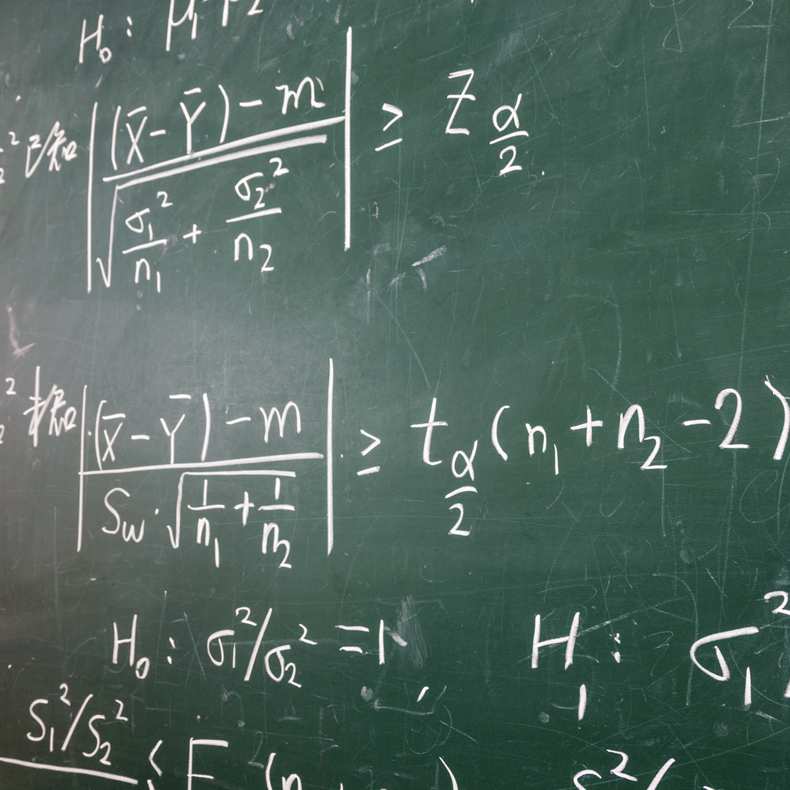 H₀:
已知 |((X̄ - Ȳ) - m) / √(σ₁²/n₁ + σ₂²/n₂)| ≥ Z_{α/2}.
未知 |((X̄ - Ȳ) - m) / (S_w · √(1/n₁ + 1/n₂))| ≥ t_{α/2}(n₁ + n₂ - 2)
H₀: σ₁²/σ₂² = 1 H₁: σ₁²
S₁²/S₂² ≤ F